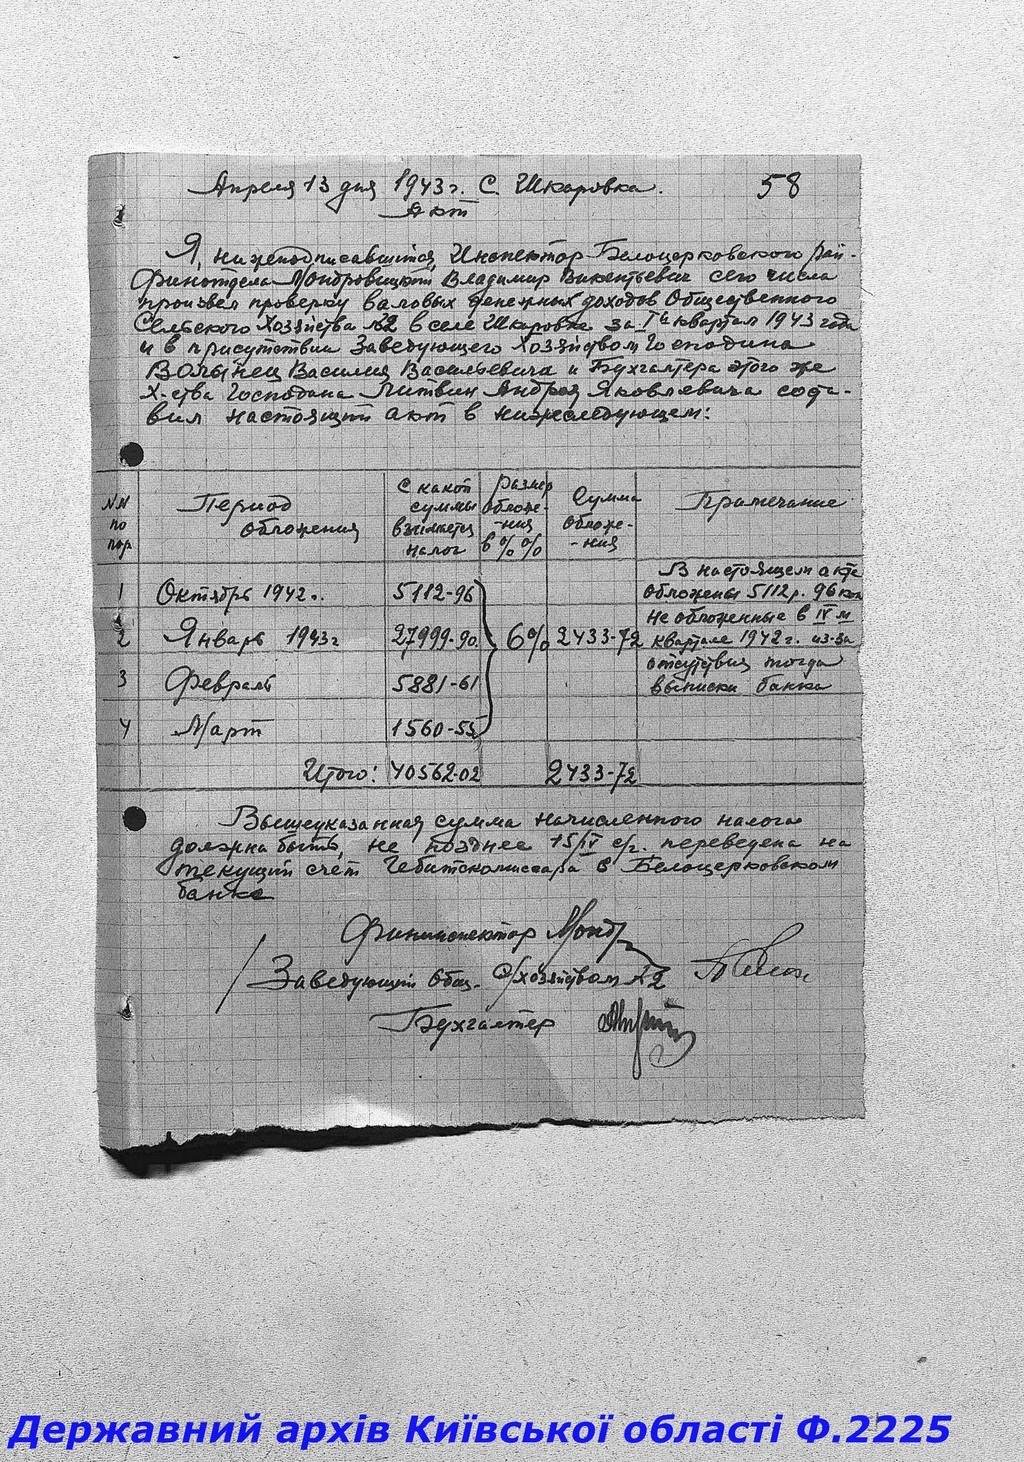 Апреля 13 дня 1943 г. С. Шкаровка. 58
Акт
Я, нижеподписавшийся, Инспектор Белоцерковского Рай-
финотдела Владимир Викентьевич сего числа
произвел проверку валовых денежных доходов Общественного
Сельского Хозяйства №2 в селе Шкаровке за Iй квартал 1943 года
и в присутствии Заведующего Хозяйством Господина
Волынец Василия Васильевича и Бухгалтера этого же
Х-ства Господина Литвин Андрея Яковлевича соста-
вил настоящий акт в нижеследующем:
NN по пор.
Период обложения
С какой суммы взымается налог
Размер обложе-ния в %%
Сумма обложе-ния
Примечание
1 Октябрь 1942 г. 5112-96
2 Январь 1943 г 27999-90
3 Февраль 5881-61
4 Март 1560-55
6% 2433-72
В настоящем акте
обложены 5112 р. 96 коп
не обложенные в IV м
квартале 1942 г. из-за
отсутствия тогда
выписки банка
Итого: 40562-02 2433-72
Вышеуказанная сумма начисленного налога
должна быть, не позднее 15/IV с/г. переведена на
текущий счет Гебитскомиссара в Белоцерковском
банке
Фининспектор
Заведующий Общ. С/хозяйством №2
Бухгалтер
Державний архів Київської області Ф.2225